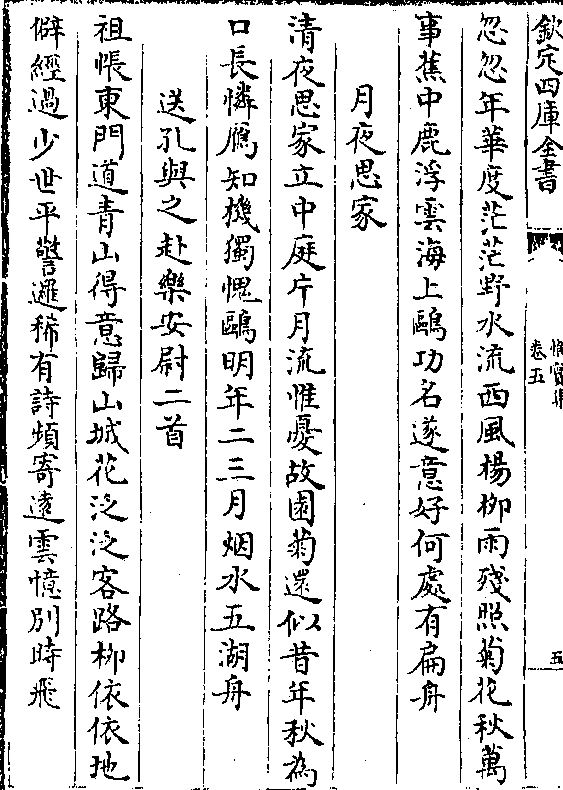 欽定四庫全書
惟實集
卷五
五
忽忽年華度茫茫野水流西風楊栁雨殘照菊花秋萬
事蕉中鹿浮雲海上鷗功名遂意好何處有扁舟
月夜思家
清夜思家立中庭片月流惟憂故園菊還似昔年秋為
口長憐鴈知機獨愧鷗明年二三月烟水五湖舟
送孔與之赴樂安尉二首
祖悵東門道青山得意歸山城花泛泛客路栁依依地
僻經過少世平警邏稀有詩頻寄遠雲憶別時飛